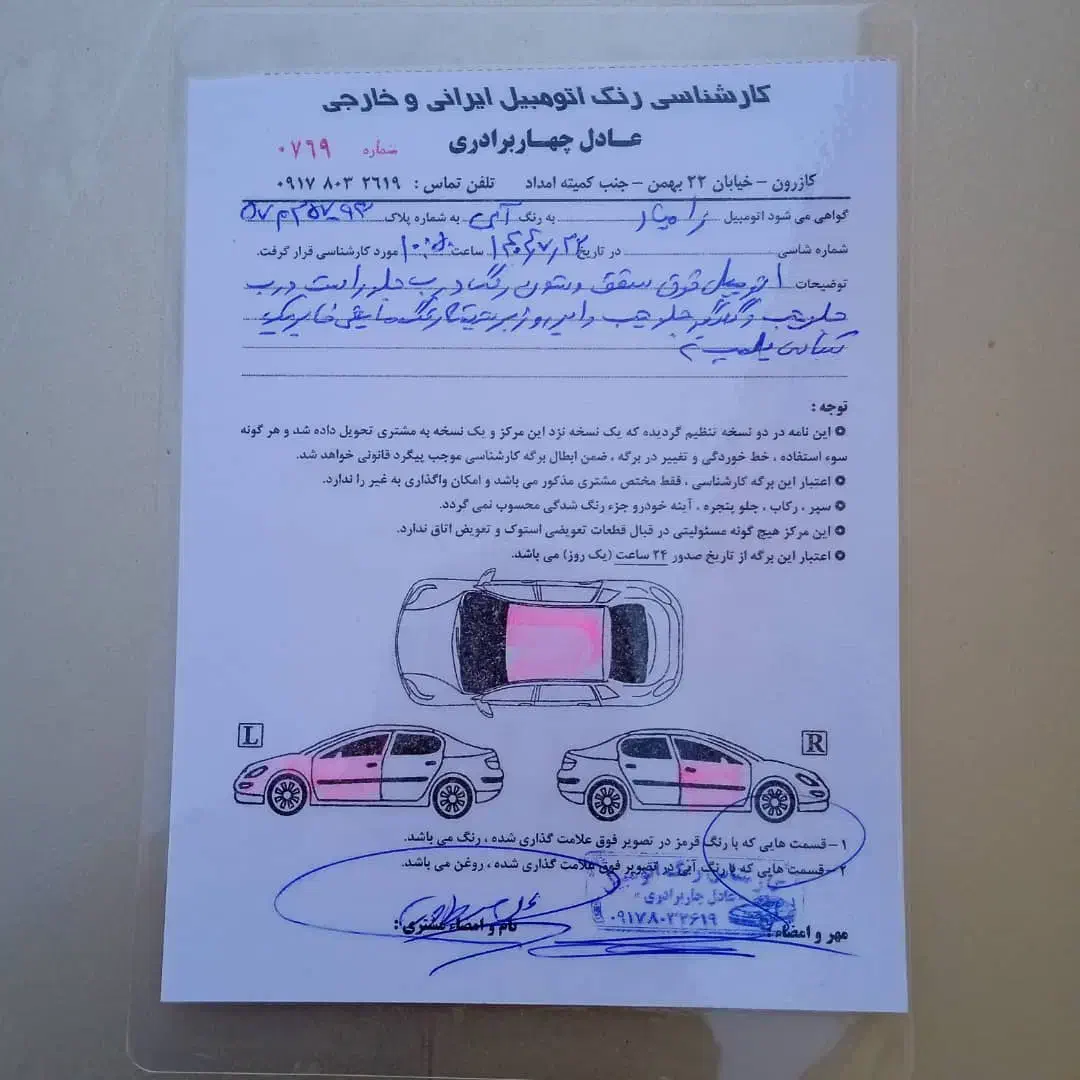 کارشناسی رنگ اتومبیل ایرانی و خارجی
عادل چهاربرادری
شماره ۰۷۶۹
کازرون – خیابان ۲۲ بهمن – جنب کمیته امداد تلفن تماس : ۰۹۱۷ ۸۰۳ ۲۶۱۹
گواهی می شود اتومبیل زامیاد به رنگ آبی به شماره پلاک
شماره شاسی در تاریخ ساعت مورد کارشناسی قرار گرفت.
توضیحات اتومبیل فوق سقف وستون رنگ درب جلو راست درب
جلو چپ و گلگیر جلو چپ
توجه :
این نامه در دو نسخه تنظیم گردیده که یک نسخه نزد این مرکز و یک نسخه به مشتری تحویل داده شد و هر گونه
سوء استفاده ، خط خوردگی و تغییر در برگه ، ضمن ابطال برگه کارشناسی موجب پیگرد قانونی خواهد شد.
اعتبار این برگه کارشناسی ، فقط مختص مشتری مذکور می باشد و امکان واگذاری به غیر را ندارد.
سپر ، رکاب ، جلو پنجره ، آینه خودرو جزء رنگ شدگی محسوب نمی گردد.
این مرکز هیچ گونه مسئولیتی در قبال قطعات تعویضی استوک و تعویض اتاق ندارد.
اعتبار این برگه از تاریخ صدور ۲۴ ساعت (یک روز) می باشد.
L
R
۱– قسمت هایی که با رنگ قرمز در تصویر فوق علامت گذاری شده ، رنگ می باشد.
۲– قسمت هایی که با رنگ آبی در تصویر فوق علامت گذاری شده ، روغن می باشد.
کارشناسی رنگ اتومبیل
عادل چاربرادری
۰۹۱۷۸۰۳۲۶۱۹
مهر و امضاء :
نام و امضاء مشتری :